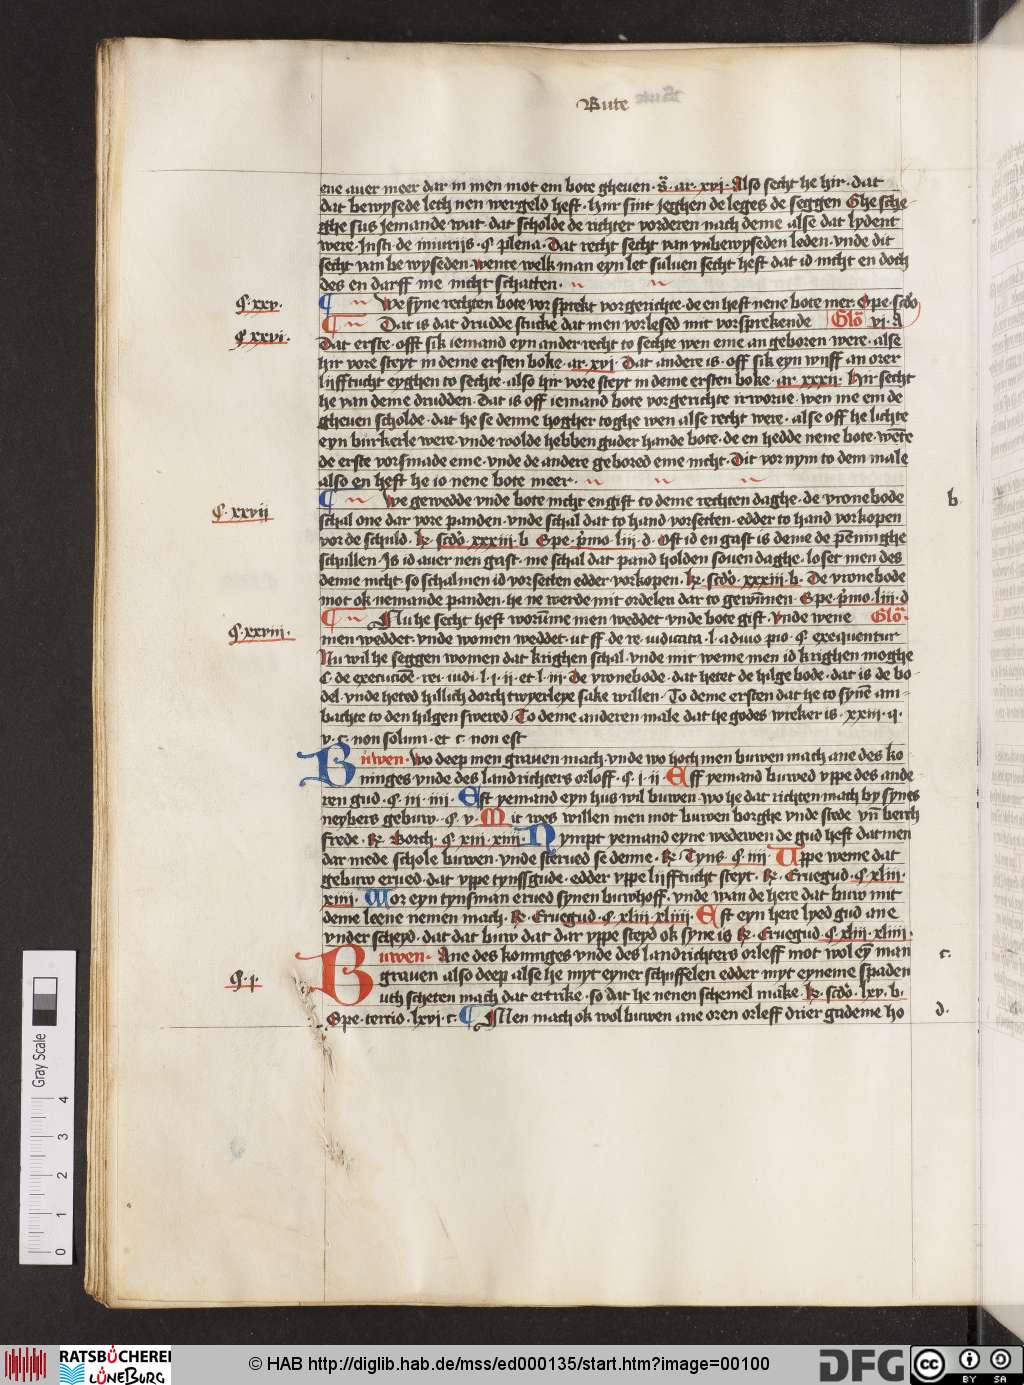 Bute
ene auer meer dar in men mot em bote gheuen · ar · xvi · Also secht he hir · dat
dat bewysede leth nen wergeld heft · Hiir sint jeghen de leges de seggen Ghesche
ghe sus jemande wat · dat scholde de richter vorderen nach deme alse dat lydent
were · Insti · de iniurijs · § plena · Dat recht secht van vnbewyseden leden · vnde dit
secht van bewyseden · wente welk man eyn let suluen secht heft dat id nicht en doch
des en darff me nicht schatten ·
§ · xxv · We syne rechten bote vorsprekt vorgerichte · de en heft nene bote mer · Spe · scđo
§ xxvi · Dat is dat drudde stucke dat men vorlesed mit vorsprekende Glo vi · A
Dat erste · offt sik iemand eyn ander recht to sechte wen eme an geboren were · alse
hir vore steyt in deme ersten boke · ar · xvi · Dat andere is · off sik eyn wyff an orer
liifftucht eyghen to sechte · also hir vore steyt in deme ersten boke · ar · xxxii · Hir secht
he van deme drudden · Dat is off iemand bote vorgerichte irworue · wen me em de
gheuen scholde · dat he se denne hogher toghe wen alse recht were · alse off he lichte
eyn burkerle were · vnde wolde hebben guder hande bote · de en hedde nene bote · wēte
de erste vorsmade eme · vnde de andere gebored eme nicht · Dit vornym to dem male
also en heft he io nene bote meer ·
§ · xxvii We gewedde vnde bote nicht en gift to deme rechten daghe · de vronebode b
schal one dar vore panden · vnde schal dat to hand vorsetten · edder to hand vorkopen
vor de schuld · scđo · xxxiii · b Spe · p̄mo · liii · d · Ost id en gast is deme de pēninghe
schullen · Is id auer nen gast · me schal dat pand holden souen daghe · loset men des
denne nicht · so schalmen id vorsetten edder vorkopen · scđo · xxxiii · b · De vronebode
mot ok nemande panden · he ne werde mit ordelen dar to gewūnen · Spe · p̄mo · liii · d
§ · xxviii · Nu he secht heft worūme men weddet vnde bote gift · vnde weme Glo ·
men weddet · vnde women weddet · ut ff de re · iudicata · l · a diuo pio · § exequentur
Nu wil he seggen women dat krighen schal · vnde mit weme men id krighen moghe
C · de execucioē · rei · iudi · l · i · ii · et l · iii · De vronebode · dat hetet de hilge bode · dat is de bo
del · vnde heted hillich dorch twyerleye sake willen · To deme ersten dat he to synē am
bachte to den hilgen swered · To deme anderen male dat he godes wreker is · xxiii · q ·
v · c · non solum · et c · non est
Buwen · Wo deep men grauen mach · vnde wo hoch men buwen mach ane des ko
ninges vnde des landrichters orloff · § · i · ii · Eff yemand buwed vppe des ande
ren gud · § · iii · iiii · Eft yemand eyn hus wil buwen · wo he dat richten mach by synes
neybers gebuw · § · v · Mit wes willen men mot buwen borghe vnde stede vn̄ berch
frede · Borch · § · xiii · xiiii · Nympt yemand eyne wedewen de gud heft dat men
dar mede schole buwen · vnde sterued se denne · Tyns · § · iiii · Uppe weme dat
gebuw erued · dat vppe tynssgude · edder vppe liifftucht steyt · Eruegud · § · xliii ·
xiiii · Wor eyn tynsman erued synen buwhoff · vnde wan de here dat buw mit
deme leene nemen mach · Eruegud · § · xliii · xliiii · Eft eyn here lyed gud ane
vnder scheyd · dat dat buw dat dar vppe steyd ok syne is Eruegud · § xliii · xliiii ·
Buwen · Ane des konniges vnde des landrichters orleff mot wol eȳ man c ·
§ · i · grauen also deep alse he myt eyner schuffelen edder myt eyneme spaden
uth scheten mach dat ertrike · so dat he nenen schemel make · scđo · lxv · b ·
Spe · tercio · lxvi · c · Men mach ok wol buwen ane oren orleff drier gademe ho d ·
Gray Scale
0 1 2 3 4
RATSBÜCHEREI
LÜNEBURG
© HAB http://diglib.hab.de/mss/ed000135/start.htm?image=00100
DFG
cc BY SA